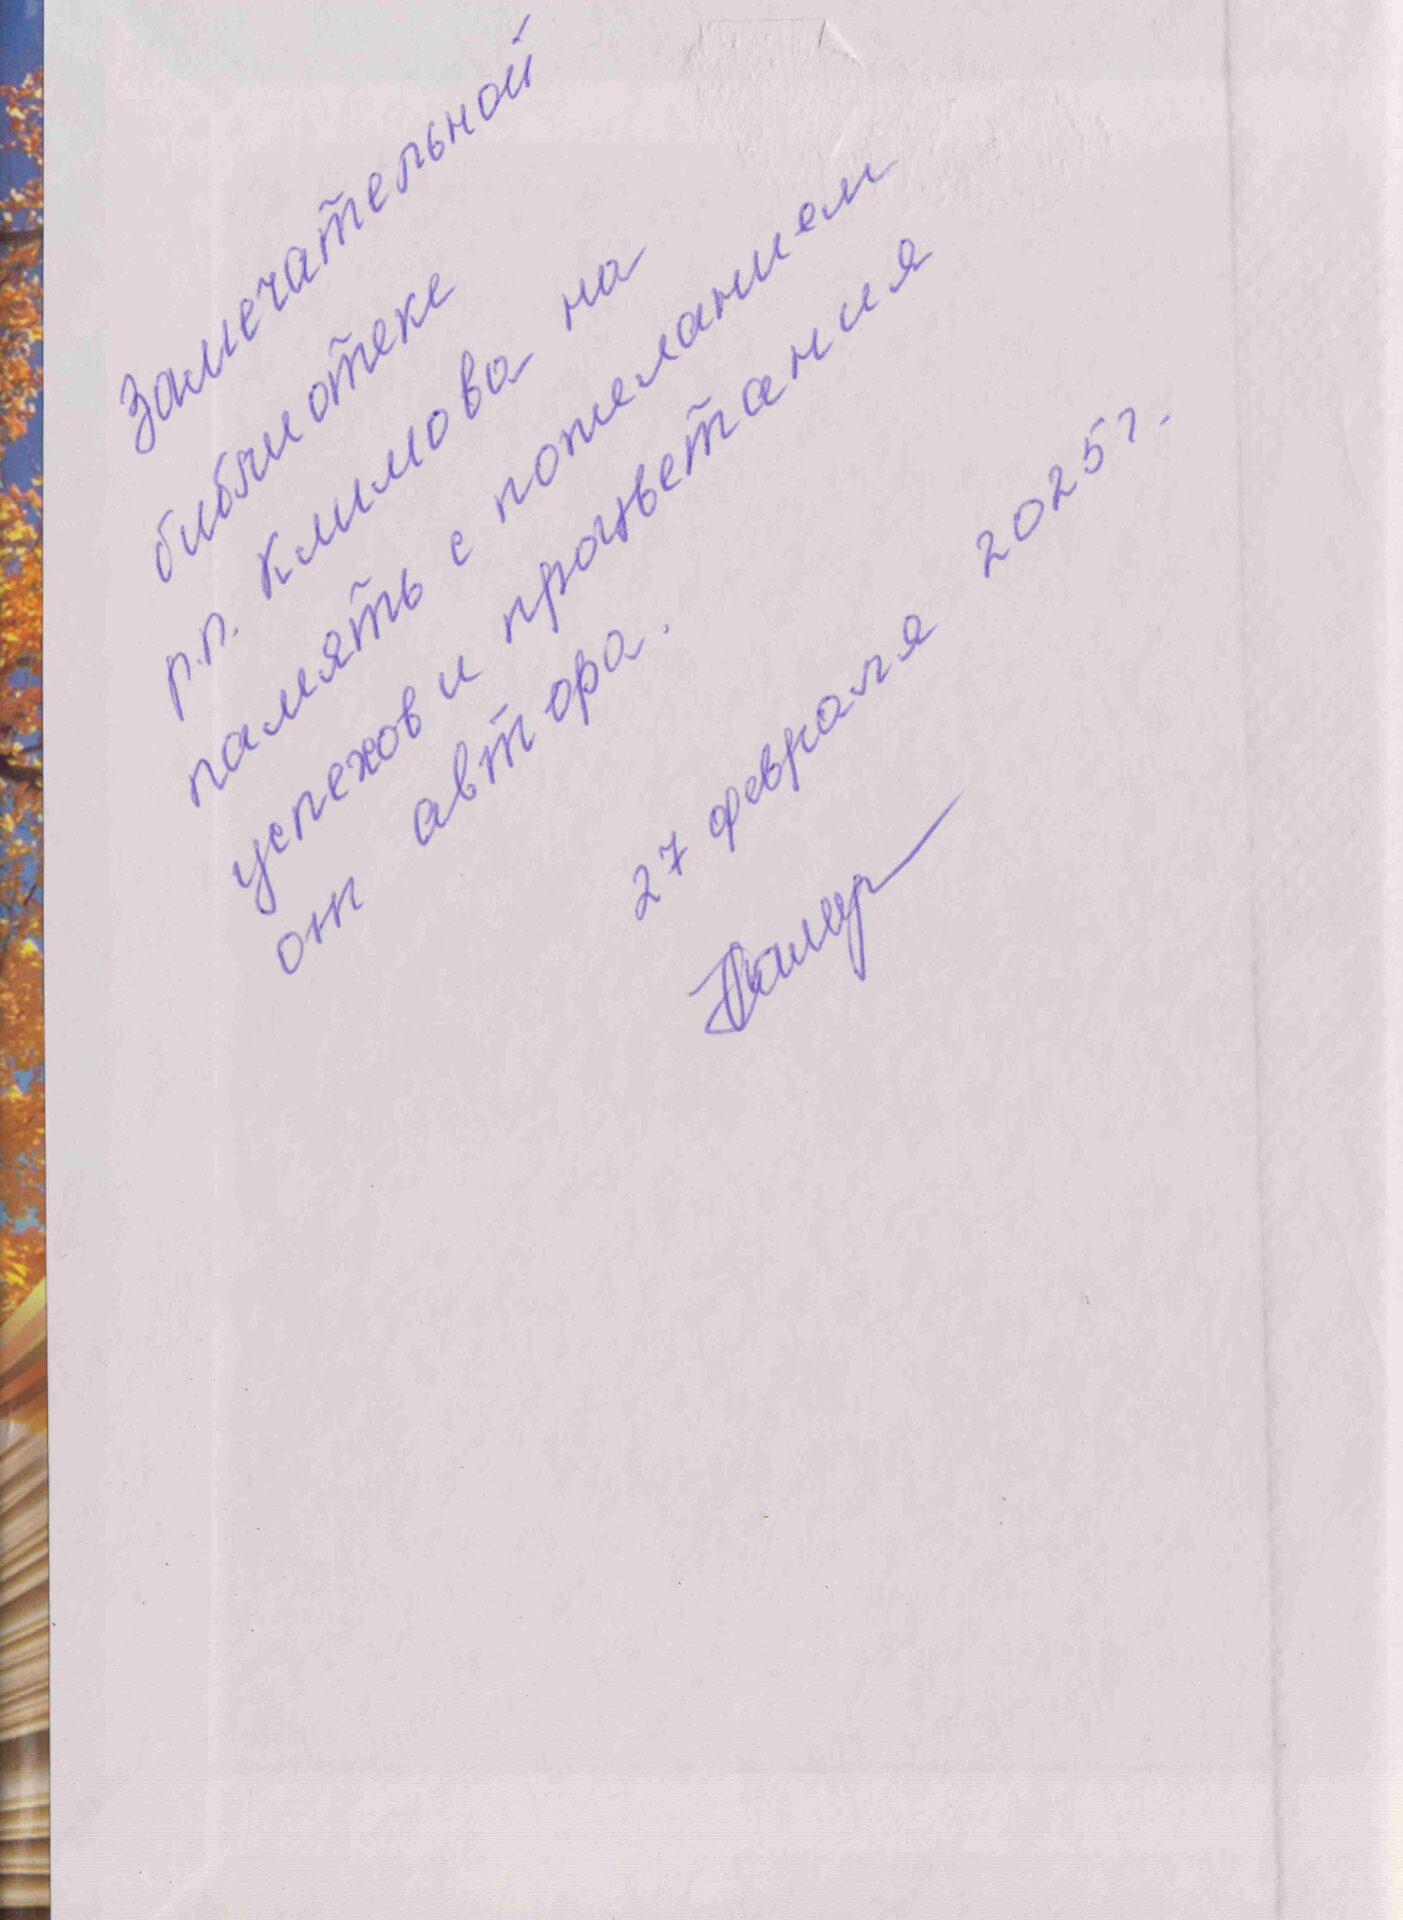 Замечательной
библиотеке
р.п. Климово на
память с пожеланием
успехов и процветания
от автора.
27 февраля 2025г.